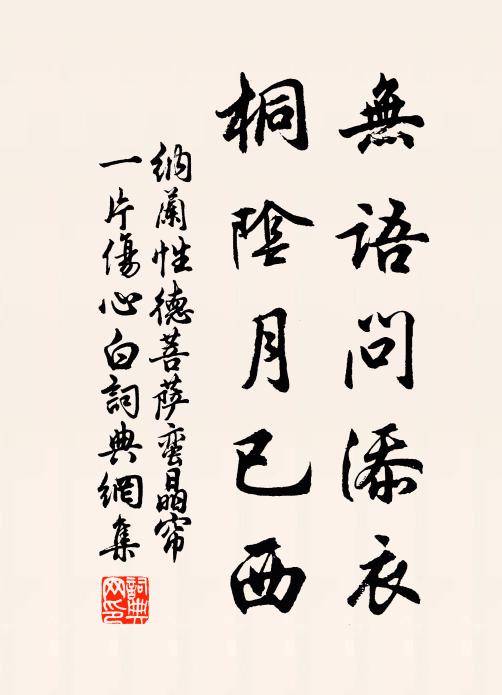 無語問添衣
桐陰月已西
納蘭性德菩薩蠻晶帘
一片傷心白詞典網集
詞典网印